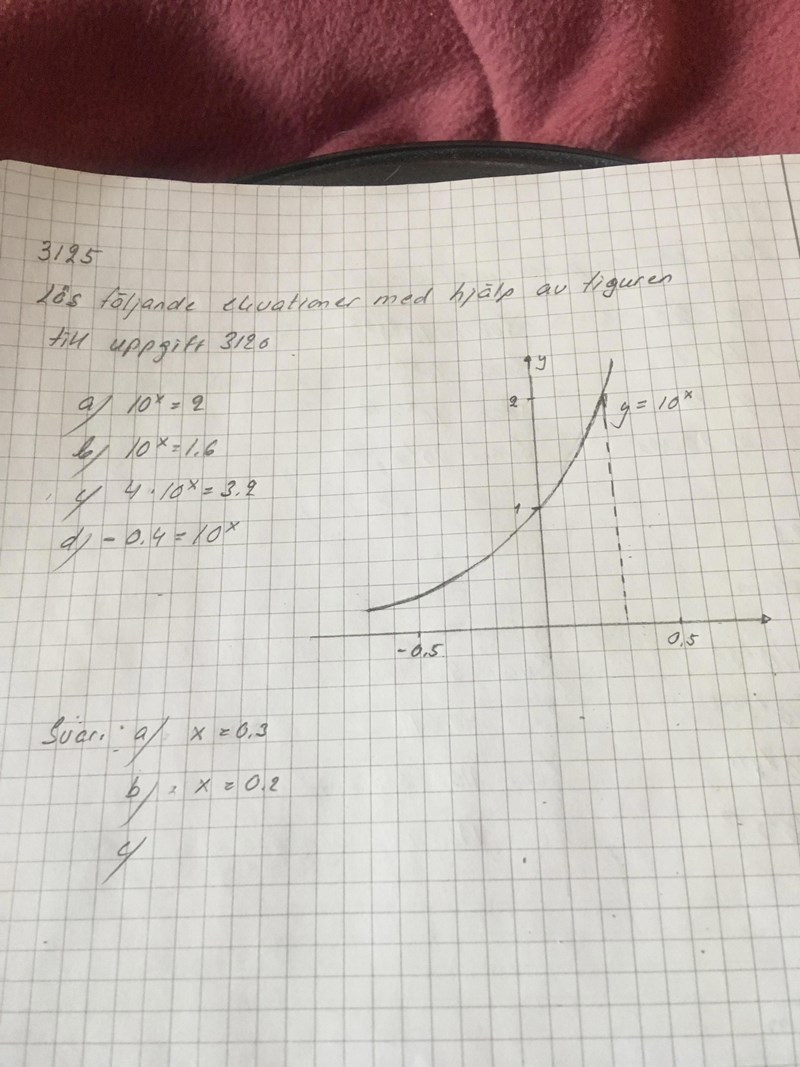 3125
Lös följande ekvationer med hjälp av figuren
till uppgift 3120
a) 10ˣ = 2
b) 10ˣ = 1.6
c) 4 · 10ˣ = 3.2
d) - 0.4 = 10ˣ
y
2
y = 10ˣ
1
-0.5
0.5
Svar: a) x = 0.3
b) x = 0.2
c)